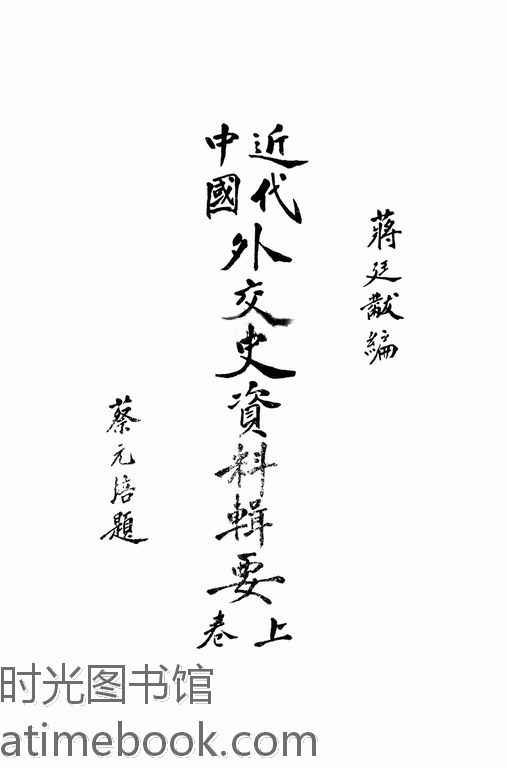 蔣廷黻編
近代
中國
外交史資料輯要
上卷
蔡元培題
时光图书馆
atimebook.com